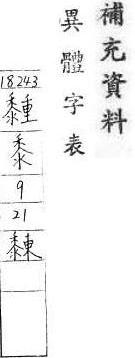 補充資料
異體字表
18243
黍
9
21